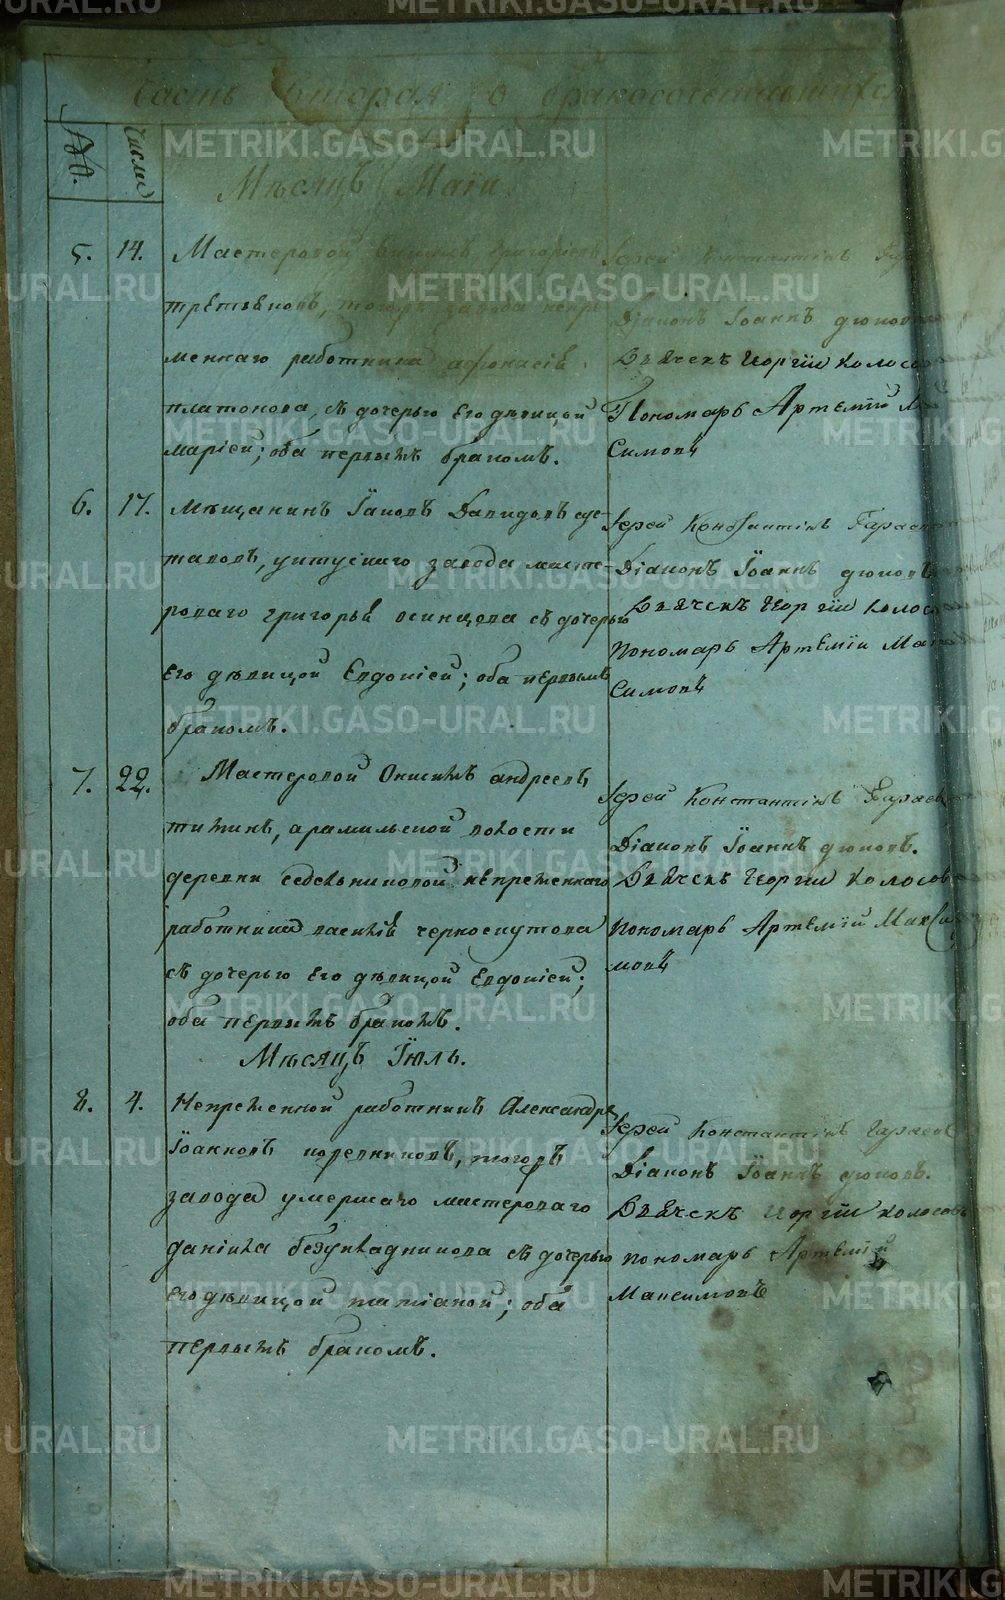 Часть вторая о бракосочетавшихся
№. Числа
Мѣсяцъ Маіи.
5. 14. Мастеровой Григорьевъ
третьяковъ, тогожъ завода непре
меннаго работника афонасія
платонова, съ дочерью его дѣвицей
Маріей; оба первымъ бракомъ.
Іерей Константінъ
Діаконъ Іоаннъ дюковъ
Дьячекъ Георгіи колосов
Пономарь Артемій М
симовъ
6. 17. Мѣщанинъ Іаковъ Давидовъ су-
таловъ, уктусскаго завода масте-
роваго григорья осинцова съ дочерью
его дѣвицой Евдокіей; оба первымъ
бракомъ.
Іерей Константінъ Гарасев
Діаконъ Іоаннъ дюковъ
Дьячекъ Георгіи колосо
пономарь Артеміи Мак
симовъ
7. 22. Мастеровой Онисимъ андреевъ
арамильской волости
деревни седельниковой непременнаго
работника василія черноскутова
съ дочерью его дѣвицой Евдокіей;
оба первымъ бракомъ.
Іерей Константінъ Гарасев
Діаконъ Іоаннъ дюковъ.
Дьячекъ Георгіи колосов
пономарь Артеміи Макси
мовъ
Мѣсяцъ Іюль.
8. 4. Непременной работникъ Александръ
Іоанновъ коревниковъ, тогожъ
завода умершаго мастероваго
даніила безукладникова съ дочерью
его дѣвицой татіаной; оба
первымъ бракомъ.
Іерей Константінъ Гарасев
Діаконъ Іоаннъ дюковъ.
Дьячекъ Георгіи колосовъ
пономарь Артемій
Максимовъ
METRIKI.GASO-URAL.RU